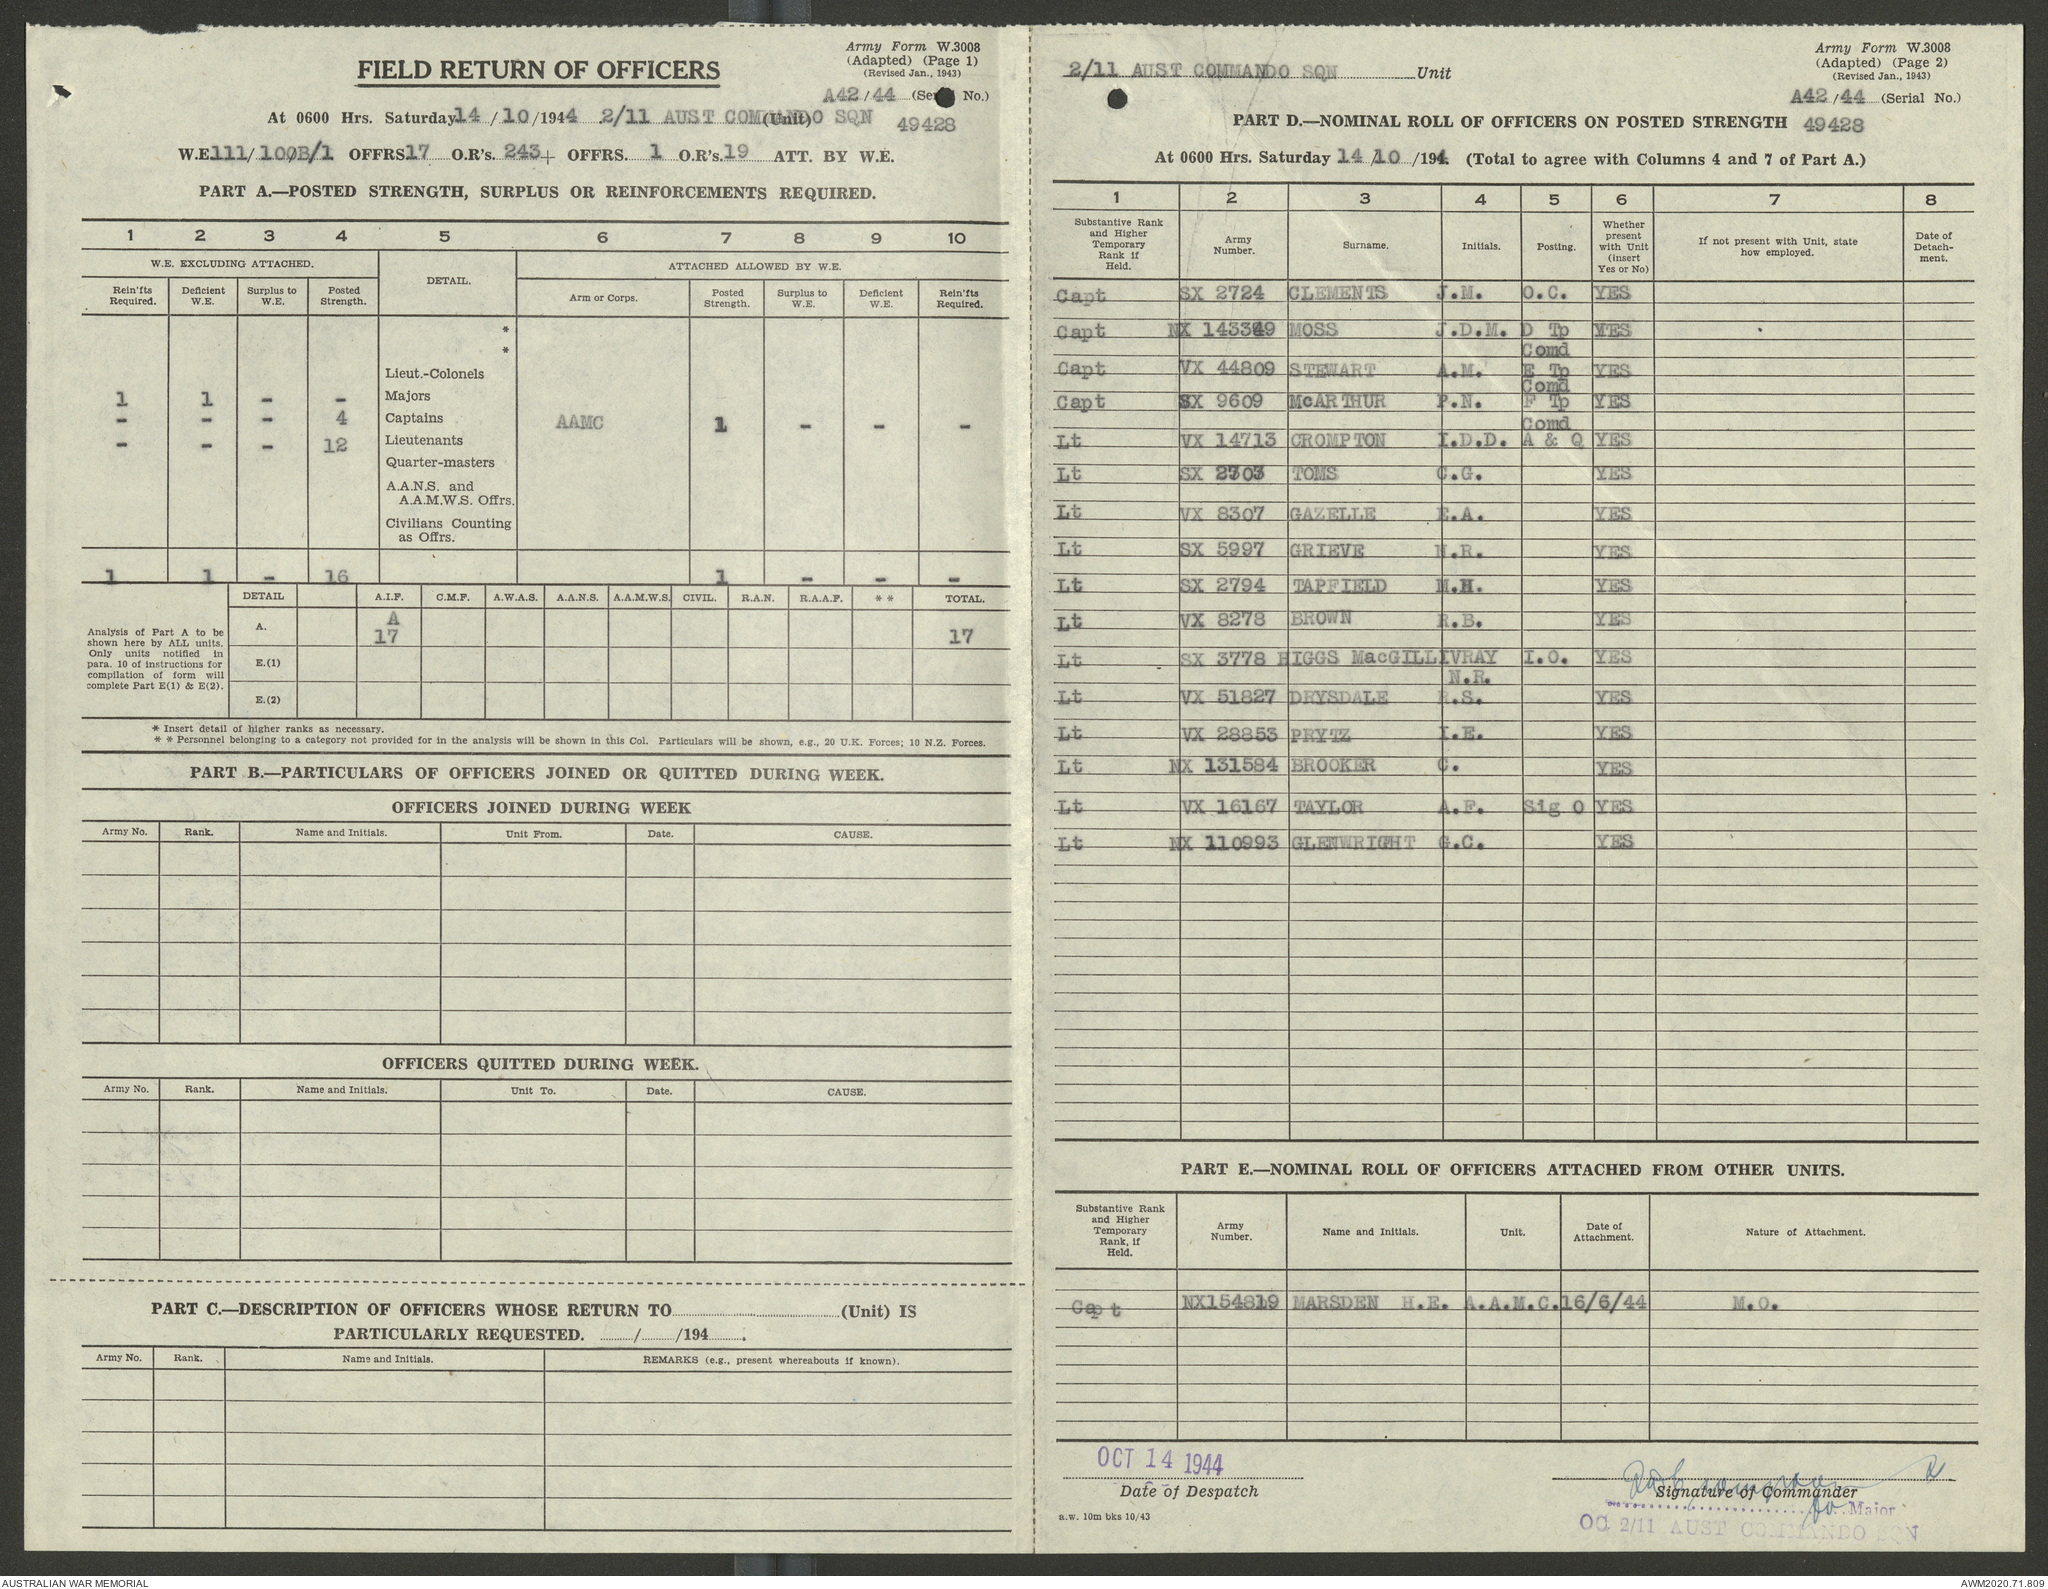 Army Form W.3008
(Adapted) (Page 1)
(Revised Jan., 1943)
FIELD RETURN OF OFFICERS
A42/44 (Serial No.)
At 0600 Hrs. Saturday 14/10/1944 2/11 AUST COMMANDO SQN (Unit) 49428
W.E. 111/100B/1 OFFRS 17 O.R's. 243+ OFFRS. 1 O.R's. 19 ATT. BY W.E.
PART A.—POSTED STRENGTH, SURPLUS OR REINFORCEMENTS REQUIRED.
1 2 3 4 5 6 7 8 9 10
W.E. EXCLUDING ATTACHED. DETAIL. ATTACHED ALLOWED BY W.E.
Rein'fts Required. Deficient W.E. Surplus to W.E. Posted Strength. Arm or Corps. Posted Strength. Surplus to W.E. Deficient W.E. Rein'fts Required.
*
*
Lieut.-Colonels
1 1 - - Majors
- - - 4 Captains AAMC 1 - - -
- - - 12 Lieutenants
Quarter-masters
A.A.N.S. and
A.A.M.W.S. Offrs.
Civilians Counting
as Offrs.
1 1 - 16 1 - - -
DETAIL A.I.F. C.M.F. A.W.A.S. A.A.N.S. A.A.M.W.S. CIVIL. R.A.N. R.A.A.F. * * TOTAL.
Analysis of Part A to be
shown here by ALL units.
Only units notified in
para. 10 of instructions for
compilation of form will
complete Part E(1) & E(2).
A. A
17 17
E.(1)
E.(2)
* Insert detail of higher ranks as necessary.
* * Personnel belonging to a category not provided for in the analysis will be shown in this Col. Particulars will be shown, e.g., 20 U.K. Forces; 10 N.Z. Forces.
PART B.—PARTICULARS OF OFFICERS JOINED OR QUITTED DURING WEEK.
OFFICERS JOINED DURING WEEK
Army No. Rank. Name and Initials. Unit From. Date. CAUSE.
OFFICERS QUITTED DURING WEEK.
Army No. Rank. Name and Initials. Unit To. Date. CAUSE.
PART C.—DESCRIPTION OF OFFICERS WHOSE RETURN TO (Unit) IS
PARTICULARLY REQUESTED. / /194 .
Army No. Rank. Name and Initials. REMARKS (e.g., present whereabouts if known).
Army Form W.3008
(Adapted) (Page 2)
(Revised Jan., 1943)
2/11 AUST COMMANDO SQN Unit
A42/44 (Serial No.)
PART D.—NOMINAL ROLL OF OFFICERS ON POSTED STRENGTH 49428
At 0600 Hrs. Saturday 14/10/1944. (Total to agree with Columns 4 and 7 of Part A.)
1 2 3 4 5 6 7 8
Substantive Rank and Higher Temporary Rank if Held. Army Number. Surname. Initials. Posting. Whether present with Unit (insert Yes or No) If not present with Unit, state how employed. Date of Detach-ment.
Capt SX 2724 CLEMENTS J.M. O.C. YES
Capt NX 143349 MOSS J.D.M. D Tp YES
Comd
Capt VX 44809 STEWART A.M. E Tp YES
Comd
Capt SX 9609 McARTHUR P.N. F Tp YES
Comd
Lt VX 14713 CROMPTON I.D.D. A & Q YES
Lt SX 2703 TOMS C.G. YES
Lt VX 8307 GAZELLE E.A. YES
Lt SX 5997 GRIEVE N.R. YES
Lt SX 2794 TAPFIELD M.H. YES
Lt VX 8278 BROWN R.B. YES
Lt SX 3778 HIGGS MacGILLIVRAY I.O. YES
N.R.
Lt VX 51827 DRYSDALE R.S. YES
Lt VX 28853 PRYTZ I.E. YES
Lt NX 131584 BROOKER C. YES
Lt VX 16167 TAYLOR A.F. Sig O YES
Lt NX 110993 GLENWRIGHT G.C. YES
PART E.—NOMINAL ROLL OF OFFICERS ATTACHED FROM OTHER UNITS.
Substantive Rank and Higher Temporary Rank, if Held. Army Number. Name and Initials. Unit. Date of Attachment. Nature of Attachment.
Capt NX154819 MARSDEN H.E. A.A.M.C. 16/6/44 M.O.
OCT 14 1944
Date of Despatch
Signature of Commander
Major
OC 2/11 AUST COMMANDO SQN
a.w. 10m bks 10/43
AUSTRALIAN WAR MEMORIAL
AWM2020.71.809